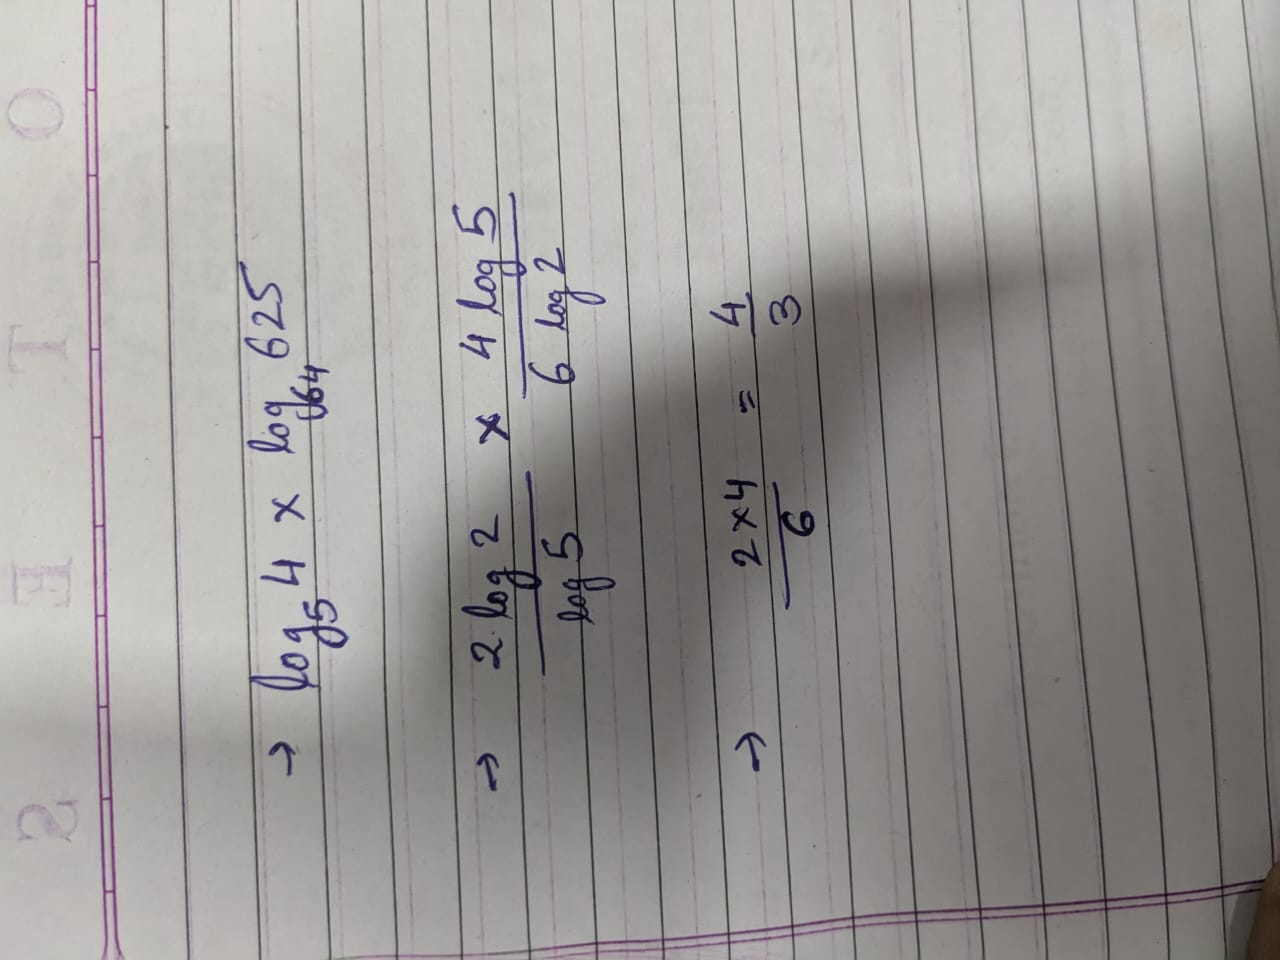 → log₅ 4 × log₆₄ 625
→ 2 log 2 / log 5 × 4 log 5 / 6 log 2
→ 2 × 4 / 6 = 4 / 3